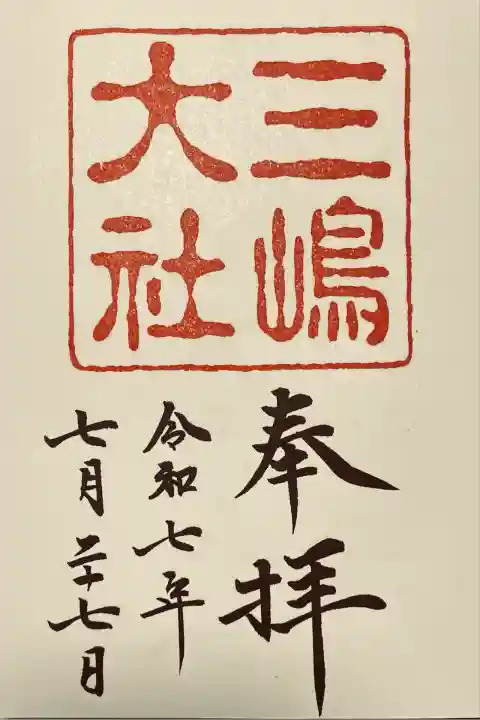 三嶋
大社
奉拝
令和七年
七月二十七日